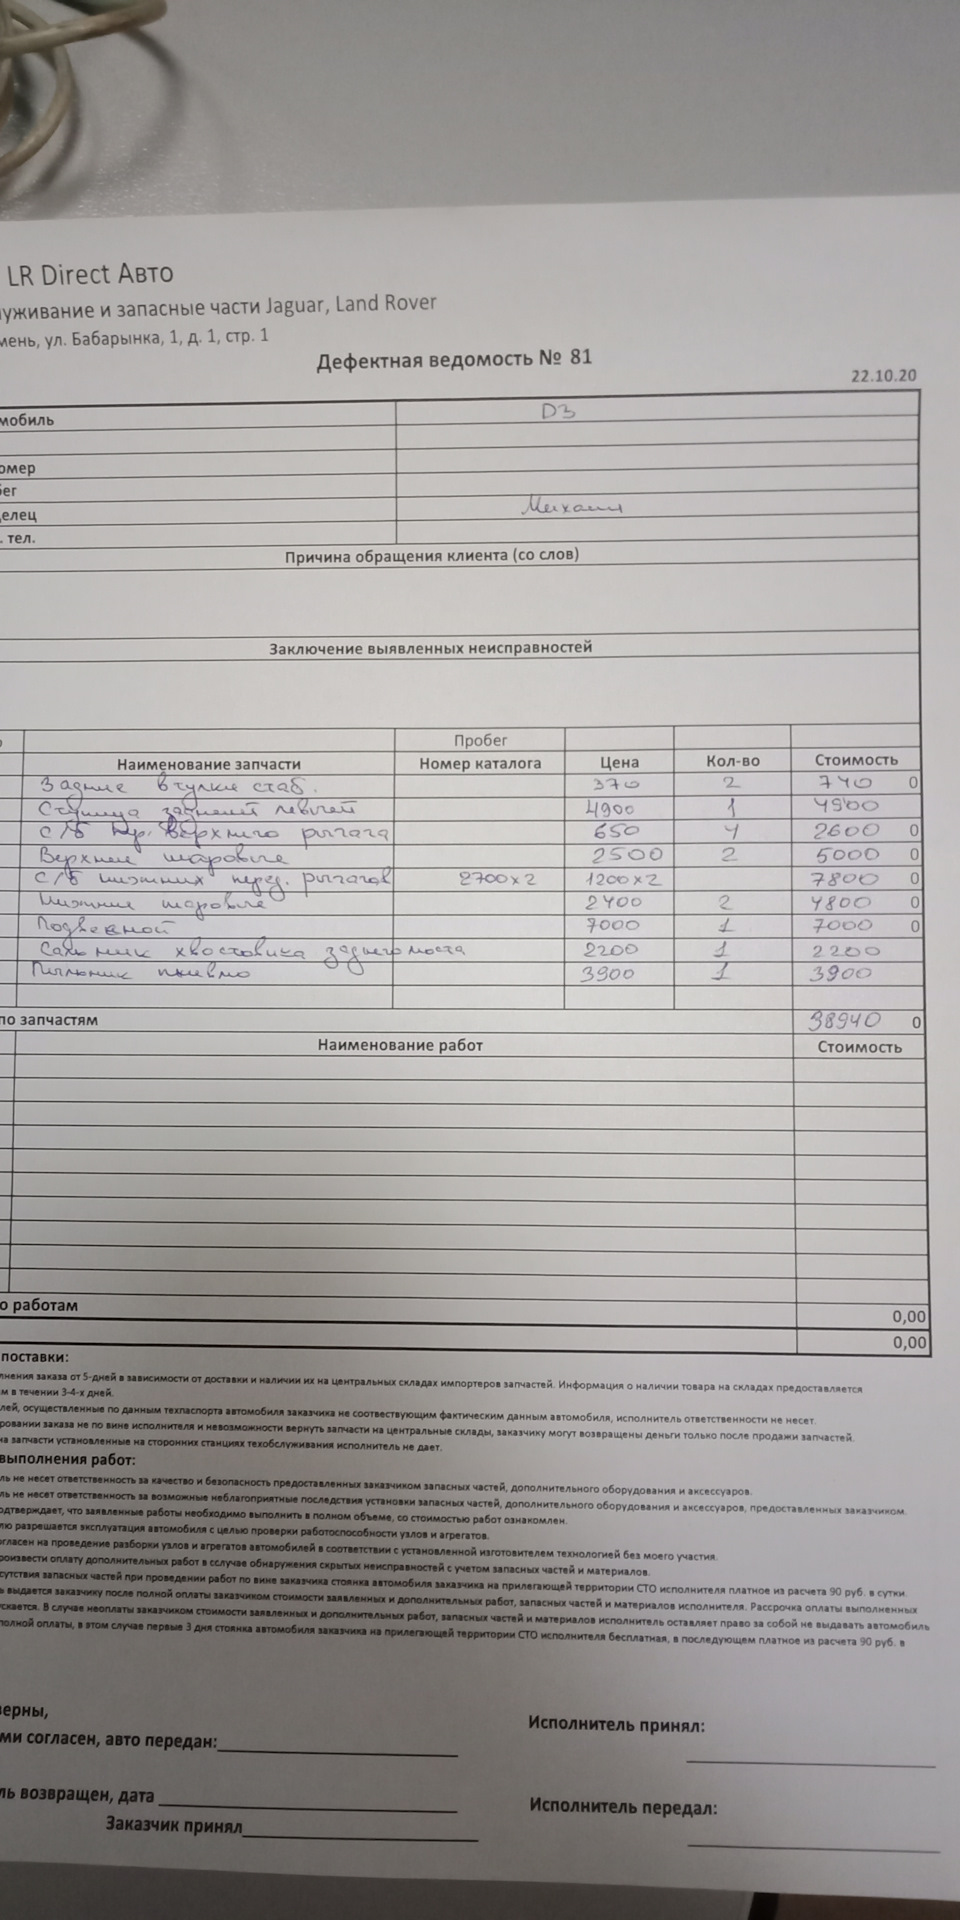 LR Direct Авто
луживание и запасные части Jaguar, Land Rover
мень, ул. Бабарынка, 1, д. 1, стр. 1
Дефектная ведомость № 81
22.10.20
мобиль D3
омер
ег
елец Михаил
. тел.
Причина обращения клиента (со слов)
Заключение выявленных неисправностей
Пробег
Наименование запчасти Номер каталога Цена Кол-во Стоимость
Задние втулки стаб. 370 2 740 0
Ступица задней левый 4900 1 4900
С/б пр. верхнего рычага 650 4 2600 0
Верхние шаровые 2500 2 5000 0
С/б нижних перед. рычагов 2700х2 1200х2 7800 0
Нижние шаровые 2400 2 4800 0
Подвесной 7000 1 7000 0
Сальник хвостовика заднего моста 2200 1 2200
Пыльник пневмо 3900 1 3900
по запчастям 38940 0
Наименование работ Стоимость
о работам 0,00
0,00
поставки:
лнения заказа от 5-дней в зависимости от доставки и наличии их на центральных складах импортеров запчастей. Информация о наличии товара на складах предоставляется
м в течении 3-4-х дней.
лей, осуществленные по данным техпаспорта автомобиля заказчика не соотвествующим фактическим данным автомобиля, исполнитель ответственности не несет.
ровании заказа не по вине исполнителя и невозможности вернуть запчасти на центральные склады, заказчику могут возвращены деньги только после продажи запчастей.
на запчасти установленные на сторонних станциях техобслуживания исполнитель не дает.
выполнения работ:
ль не несет ответственность за качество и безопасность предоставленных заказчиком запасных частей, дополнительного оборудования и аксессуаров.
ль не несет ответственность за возможные неблагоприятные последствия установки запасных частей, дополнительного оборудования и аксессуаров, предоставленных заказчиком.
одтверждает, что заявленные работы необходимо выполнить в полном объеме, со стоимостью работ ознакомлен.
лю разрешается эксплуатация автомобиля с целью проверки работоспособности узлов и агрегатов.
огласен на проведение разборки узлов и агрегатов автомобилей в соответствии с установленной изготовителем технологией без моего участия.
роизвести оплату дополнительных работ в сслучае обнаружения скрытых неисправностей с учетом запасных частей и материалов.
сутствия запасных частей при проведении работ по вине заказчика стоянка автомобиля заказчика на прилегающей территории СТО исполнителя платное из расчета 90 руб. в сутки.
ь выдается заказчику после полной оплаты заказчиком стоимости заявленных и дополнительных работ, запасных частей и материалов исполнителя. Рассрочка оплаты выполненных
ускается. В случае неоплаты заказчиком стоимости заявленных и дополнительных работ, запасных частей и материалов исполнитель оставляет право за собой не выдавать автомобиль
полной оплаты, в этом случае первые 3 дня стоянка автомобиля заказчика на прилегающей территории СТО исполнителя бесплатная, в последующем платное из расчета 90 руб. в
верны,
ми согласен, авто передан:
Исполнитель принял:
ль возвращен, дата
Исполнитель передал:
Заказчик принял